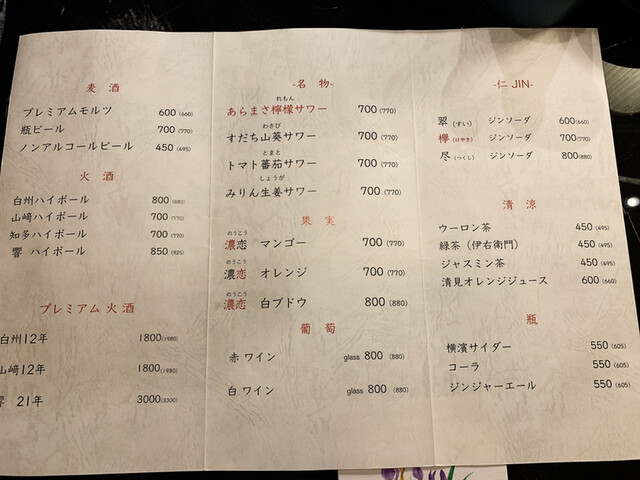 麦 酒
プレミアムモルツ 600(660)
瓶ビール 700(770)
ノンアルコールビール 450(495)
火 酒
白州ハイボール 800(880)
山﨑ハイボール 700(770)
知多ハイボール 700(770)
響 ハイボール 850(925)
プレミアム火酒
白州12年 1800(1980)
山﨑12年 1800(1980)
響 21年 3000(3300)
-名 物-
れもん
あらまさ檸檬サワー 700(770)
わさび
すだち山葵サワー 700(770)
とまと
トマト蕃茄サワー 700(770)
しょうが
みりん生姜サワー 700(770)
果 実
のうこう
濃恋 マンゴー 700(770)
のうこう
濃恋 オレンジ 700(770)
のうこう
濃恋 白ブドウ 800(880)
葡 萄
赤 ワイン glass 800(880)
白 ワイン glass 800(880)
-仁 JIN-
翠(すい) ジンソーダ 600(660)
欅(けやき) ジンソーダ 700(770)
尽(つくし) ジンソーダ 800(880)
清 涼
ウーロン茶 450(495)
緑茶(伊右衛門) 450(495)
ジャスミン茶 450(495)
清見オレンジジュース 600(660)
瓶
横濱サイダー 550(605)
コーラ 550(605)
ジンジャーエール 550(605)